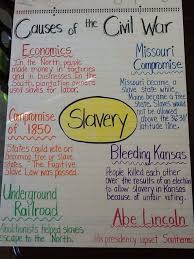 Causes of the Civil War
Economics
In the North, people
made money in factories
and in businesses in the
South, plantation owners
used slaves for labor.
Missouri
Compromise
Missouri became a
slave state while
Maine became a free
state. Slaves would
not be allowed
above the 36°30'
latitude line.
Slavery
Compromise
of 1850
States could vote on
becoming free or slave
States. The Fugitive
Slave Law was passed.
Bleeding Kansas
People killed each other
over the results of an election
to allow slavery in Kansas
because of unfair voting.
Underground
Railroad
Abolitionists helped slaves
escape to the North.
Abe Lincoln
His presidency upset Southerners